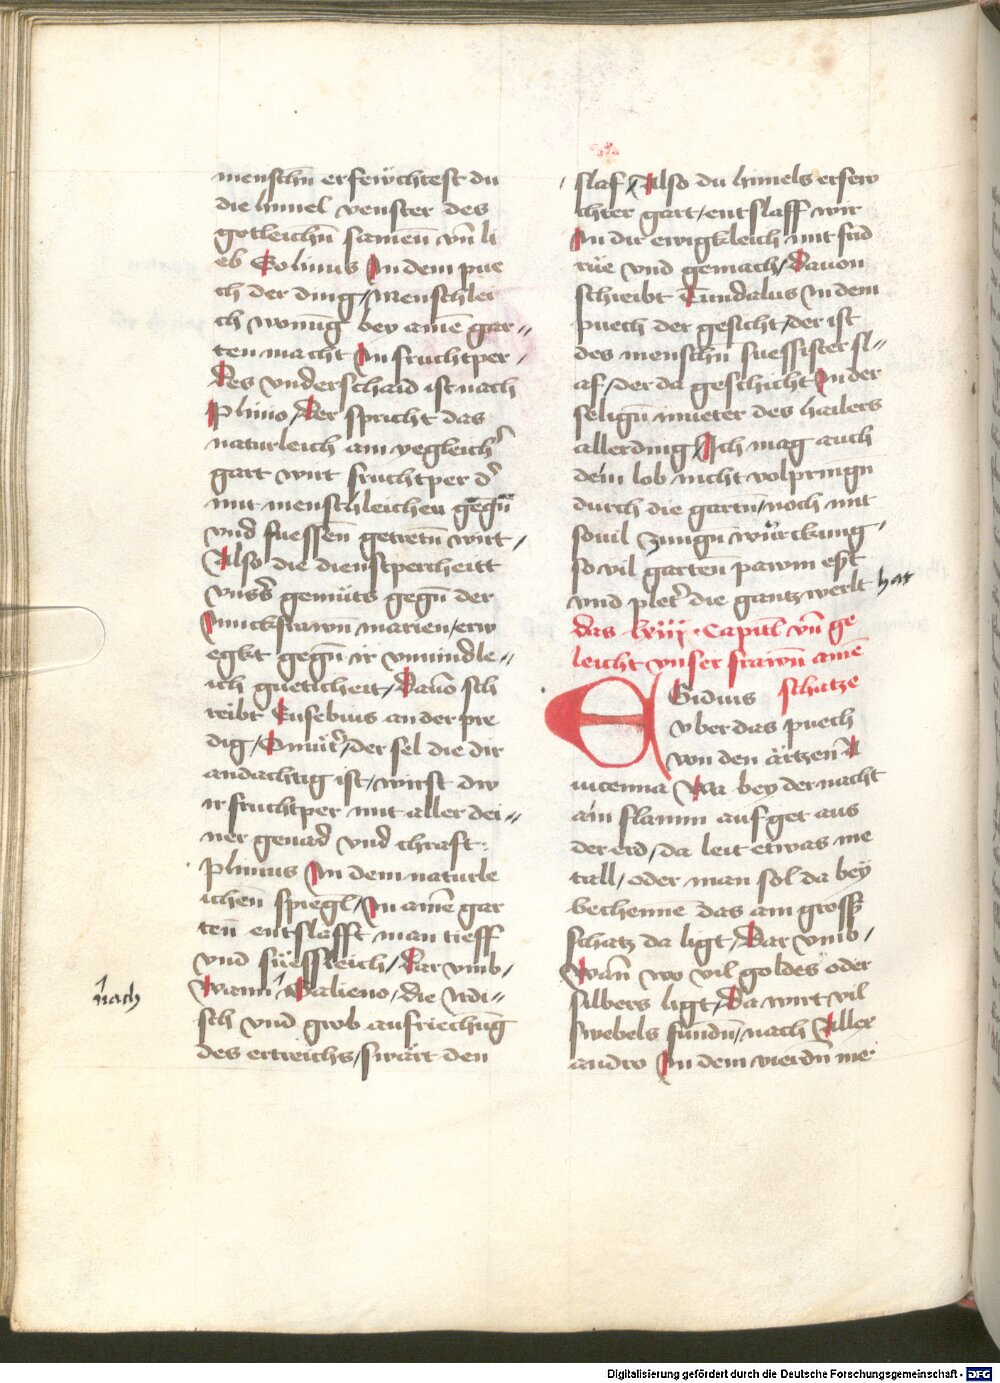 menschn̄ erfewchtest du
die himel venster des
gotleichn̄ samen̄ vn̄ li
eb Solinus In dem pue
ch der ding / Menschlei
ch wonūg bey ainē gar〃
ten macht In fruchtper /
Des vnderschaid ist nach
Plinio / Der spricht das
naturleich ain yegleich̕
gart wirt fruchtper d̕
mit menschleichen gegn̄
vnd fuessen̄ getretn̄ wirt /
Also die dienstpercheitt
vnss̕s gemüts gegn̄ der
Junckfrawn̄ marien / erw
egkt gegn̄ ir vmindle〃
ich gueticheit / Dauō sch
reibt Eusebius an der pre
dig / O müt̕ / der sel die dir
andachtig ist / wirst dw
ir fruchtper mit aller dei〃
ner genad vnd chraft :
Plinius In dem naturle
ichen̄ spiegl / In ainē gar
ten̄ entslafft man tieff
vnd süessleich / Dar vmb /
Wann Galieno / die Irdi〃
nach
sch vnd grob aufriechūg
des ertreichs / swärt den
slaf / Also du himels erfew
chter gart / entslaff wir
In dir ewigkleich mit frid
rüe vnd gemach / Dauon
schreibt Tundalus In dem
puech der gesicht / der ist
des menschn̄ suessister sl〃
af / der da geschicht In der
selign̄ mueter des hailers
allerding / Ich mag auch
dein lob nicht volpringn̄
durch die gartn̄ / noch mit
souil zungn̄ würckung /
so vil garten̄ pawm est
vnd plet̕ die gantz werlt hat
das lxiij · Capitl vn̄ ge
leicht vnser frawn̄ ainē
schatze
EGidius
vber das puech
von den ärtzen̄ A
uicenna Wa bey der nacht
ain flamm auf get aus
der erd / da leit etwas me
tall / oder man sol da bey
bechennē das ain gross̕
schatz da ligt / Dar vmb /
Wan̄ wo vil goldes oder
silbers ligt / Da wirt vil
swebels fundn̄ / nach Aller
andro In dem vierdn̄ me
Digitalisierung gefördert durch die Deutsche Forschungsgemeinschaft - DFG